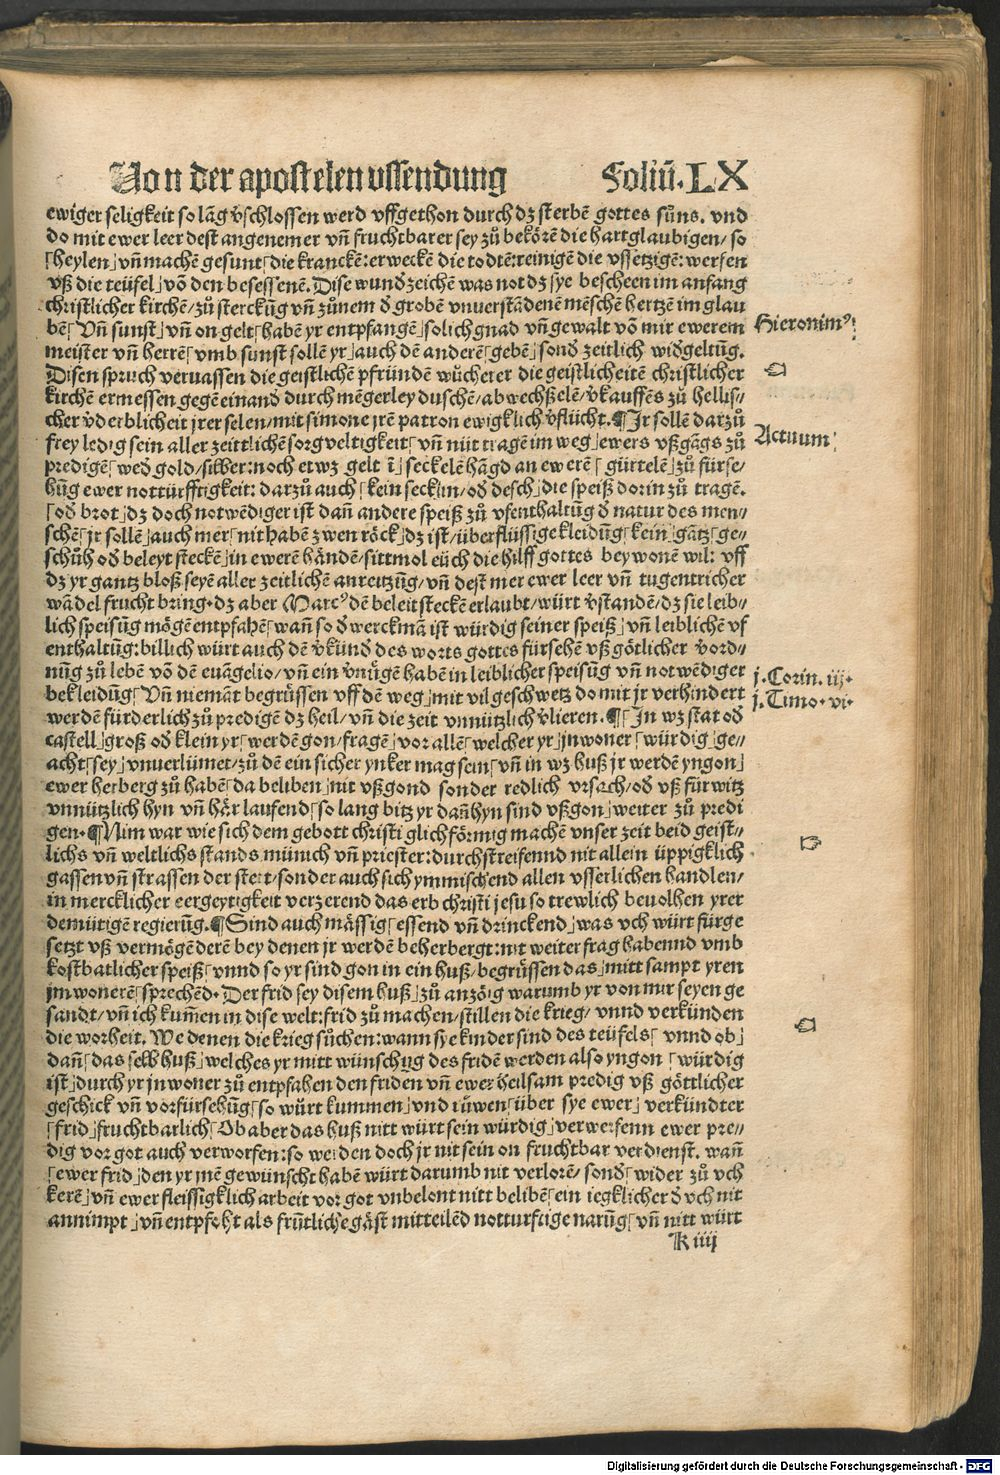 Von der apostelen vssendung Foliū. LX
ewiger seligkeit so lāg v̄schlossen werd vffgethon durch dz sterbē gottes sůns. vnd
do mit ewer leer dest angenemer vn̄ fruchtbarer sey zů bekörē die hartglaubigen/ so
⸢heylen⸥ vn̄ machē gesunt⸢ die kranckē: erweckē die todtē: reinigē die vssetzigē: werfen
vß die teüfel⸥ vō den besessenē. Dise wundzeichē was not dz sye bescheen im anfang
christlicher kirchē/ zů sterckūg vn̄ zůnem d̄ grobē vnuerstādenē mēschē hertzē im glau
bē⸢ Vn̄ sunst⸥ vn̄ on gelt⸢ habē yr entpfangē⸥ solich gnad vn̄ gewalt vō mir ewerem
meister vn̄ herrē⸢ vmb sunst sollē yr⸥ auch dē anderē⸢ gebē⸥ sond̄ zeitlich wid̄geltūg.
Disen spruch veruassen die geistlichē pfründē wůcherer die geistlicheitē christlicher
kirchē ermessen gegē einand̄ durch mēgerley duschē/ abwechßelē/ v̄kauffēs zů hellis⸗
cher v̄derblicheit jrer selen/ mit simone jrē patron ewigklich v̄flůcht. ¶ Jr sollē darzů
frey ledig sein aller zeittlichē sorgveltigkeit⸢ vn̄ nüt tragē im weg⸥ ewers vßgāgs zů
predigē⸢ wed̄ gold/ silber: noch etwz gelt ī⸥ seckelē hāgd an ewerē⸢ gürtelē⸥ zů fürse⸗
hūg ewer notturfftigkeit: darzů auch⸢ kein secklin/ od̄ desch⸥ die speiß dorin zů tragē.
⸢od̄ brot⸥ dz doch notwēdiger ist dan̄ andere speiß zů vfenthaltūg d̄ natur des men⸗
schē⸢ jr sollē⸥ auch mer⸢ nit habē zwen röck⸥ dz ist/ überflüssige kleidūg⸢ kein⸥ gātz⸢ ge⸗
schůh od̄ beleyt steckē⸥ in ewerē hāndē/ sittmol eüch die hilff gottes beywonē wil: vff
dz yr gantz bloß seyē aller zeitlichē anreitzūg/ vn̄ dest mer ewer leer vn̄ tugentricher
wādel frucht bring. dz aber Marcꝰ dē beleitsteckē erlaubt/ würt v̄standē/ dz sie leib⸗
lich speisūg mögē entpfahē⸢ wan̄ so d̄ werckmā ist würdig seiner speiß⸥ vn̄ leiblichē vf
enthaltūg: billich würt auch dē v̄kūnd̄ des worts gottes fürsehē vß götlicher v̄ord⸗
nūg zů lebē vō dē euāgelio/ vn̄ ein v̄nügē habē in leiblicher speisūg vn̄ notwēdiger
bekleidūg⸢ Vn̄ niemāt begrüssen vff dē weg⸥ mit vil geschwetz do mit jr verhindert
werdē fürderlich zů predigē dz heil/ vn̄ die zeit vnnützlich v̄lieren. ¶⸢ In wz stat od̄
castell⸥ groß od̄ klein yr⸢ werdē gon/ fragē⸥ vor allē⸢ welcher yr⸥ jnwoner⸢ würdig⸥ ge⸗
acht⸢ sey⸥ vnuerlümet/ zů dē ein sicher ynker mag sein⸢ vn̄ in wz huß jr werdē yngon⸥
ewer herberg zů habē⸢ da beliben⸥ nit vßgond sonder redlich vrsach/ od̄ vß fürwitz
vnnützlich hyn vn̄ här laufend⸢ so lang bitz yr dan̄hyn sind vßgon⸥ weiter zů predi
gen. ¶ Nim war wie sich dem gebott christi glichförmig machē vnser zeit beid geist⸗
lichs vn̄ weltlichs stands münich vn̄ priester: durchstreifennd nit allein üppigklich
gassen vn̄ strassen der stett/ sonder auch sich ymmischend allen vsserlichen handlen/
in mercklicher eergeytigkeit verzerend das erb christi jesu so trewlich beuolhen yrer
demütigē regierūg. ¶⸢ Sind auch mässig⸢ essend vn̄ drinckend⸥ was vch würt fürge
setzt vß vermögē derē bey denen jr werdē beherbergt: nit weiter frag habennd vmb
kostbatlicher speiß⸢ vnnd so yr sind gon in ein huß/ begrüssen das⸥ mitt sampt yren
jmwonerē⸢ sprechēd. Der frid sey disem huß⸥ zů anzöig warumb yr von mir seyen ge
sandt/ vn̄ ich kum̄en in dise welt: frid zů machen/ stillen die krieg/ vnnd verkünden
die worheit. We denen die krieg sůchen: wann sye kinder sind des teüfels⸢ vnnd ob⸥
dan̄⸢ das selb huß⸥ welches yr mitt wünschūg des fridē werden also yngon⸢ würdig
ist⸥ durch yr jnwoner zů entpfahen den friden vn̄ ewer heilsam predig vß göttlicher
geschick vn̄ vorfürsehūg⸢ so würt kummen⸥ vnd růwen⸢ über sye ewer⸥ verkündter
⸢frid⸥ fruchtbarlich⸢ Ob aber das huß nitt würt sein würdig⸥ verwerfenn ewer pre⸗
dig vor got auch verworfen: so werden doch jr nit sein on fruchtbar verdienst. wan̄
⸢ewer frid⸥ den yr jnē gewünscht habē würt darumb nit verlorē/ sond̄⸢ wider zů vch
kerē⸥ vn̄ ewer fleissigklich arbeit vor got vnbelont nitt belibē⸢ ein iegklicher d̄ vch nit
annimpt⸥ vn̄ entpfoht als früntliche gäst mitteilēd notturftige narūg⸢ vn̄ nitt würt
K iiij
Hieronimꝰ
Actuum
j. Corin. iij.
j. Timo. vi.
Digitalisierung gefördert durch die Deutsche Forschungsgemeinschaft - DFG